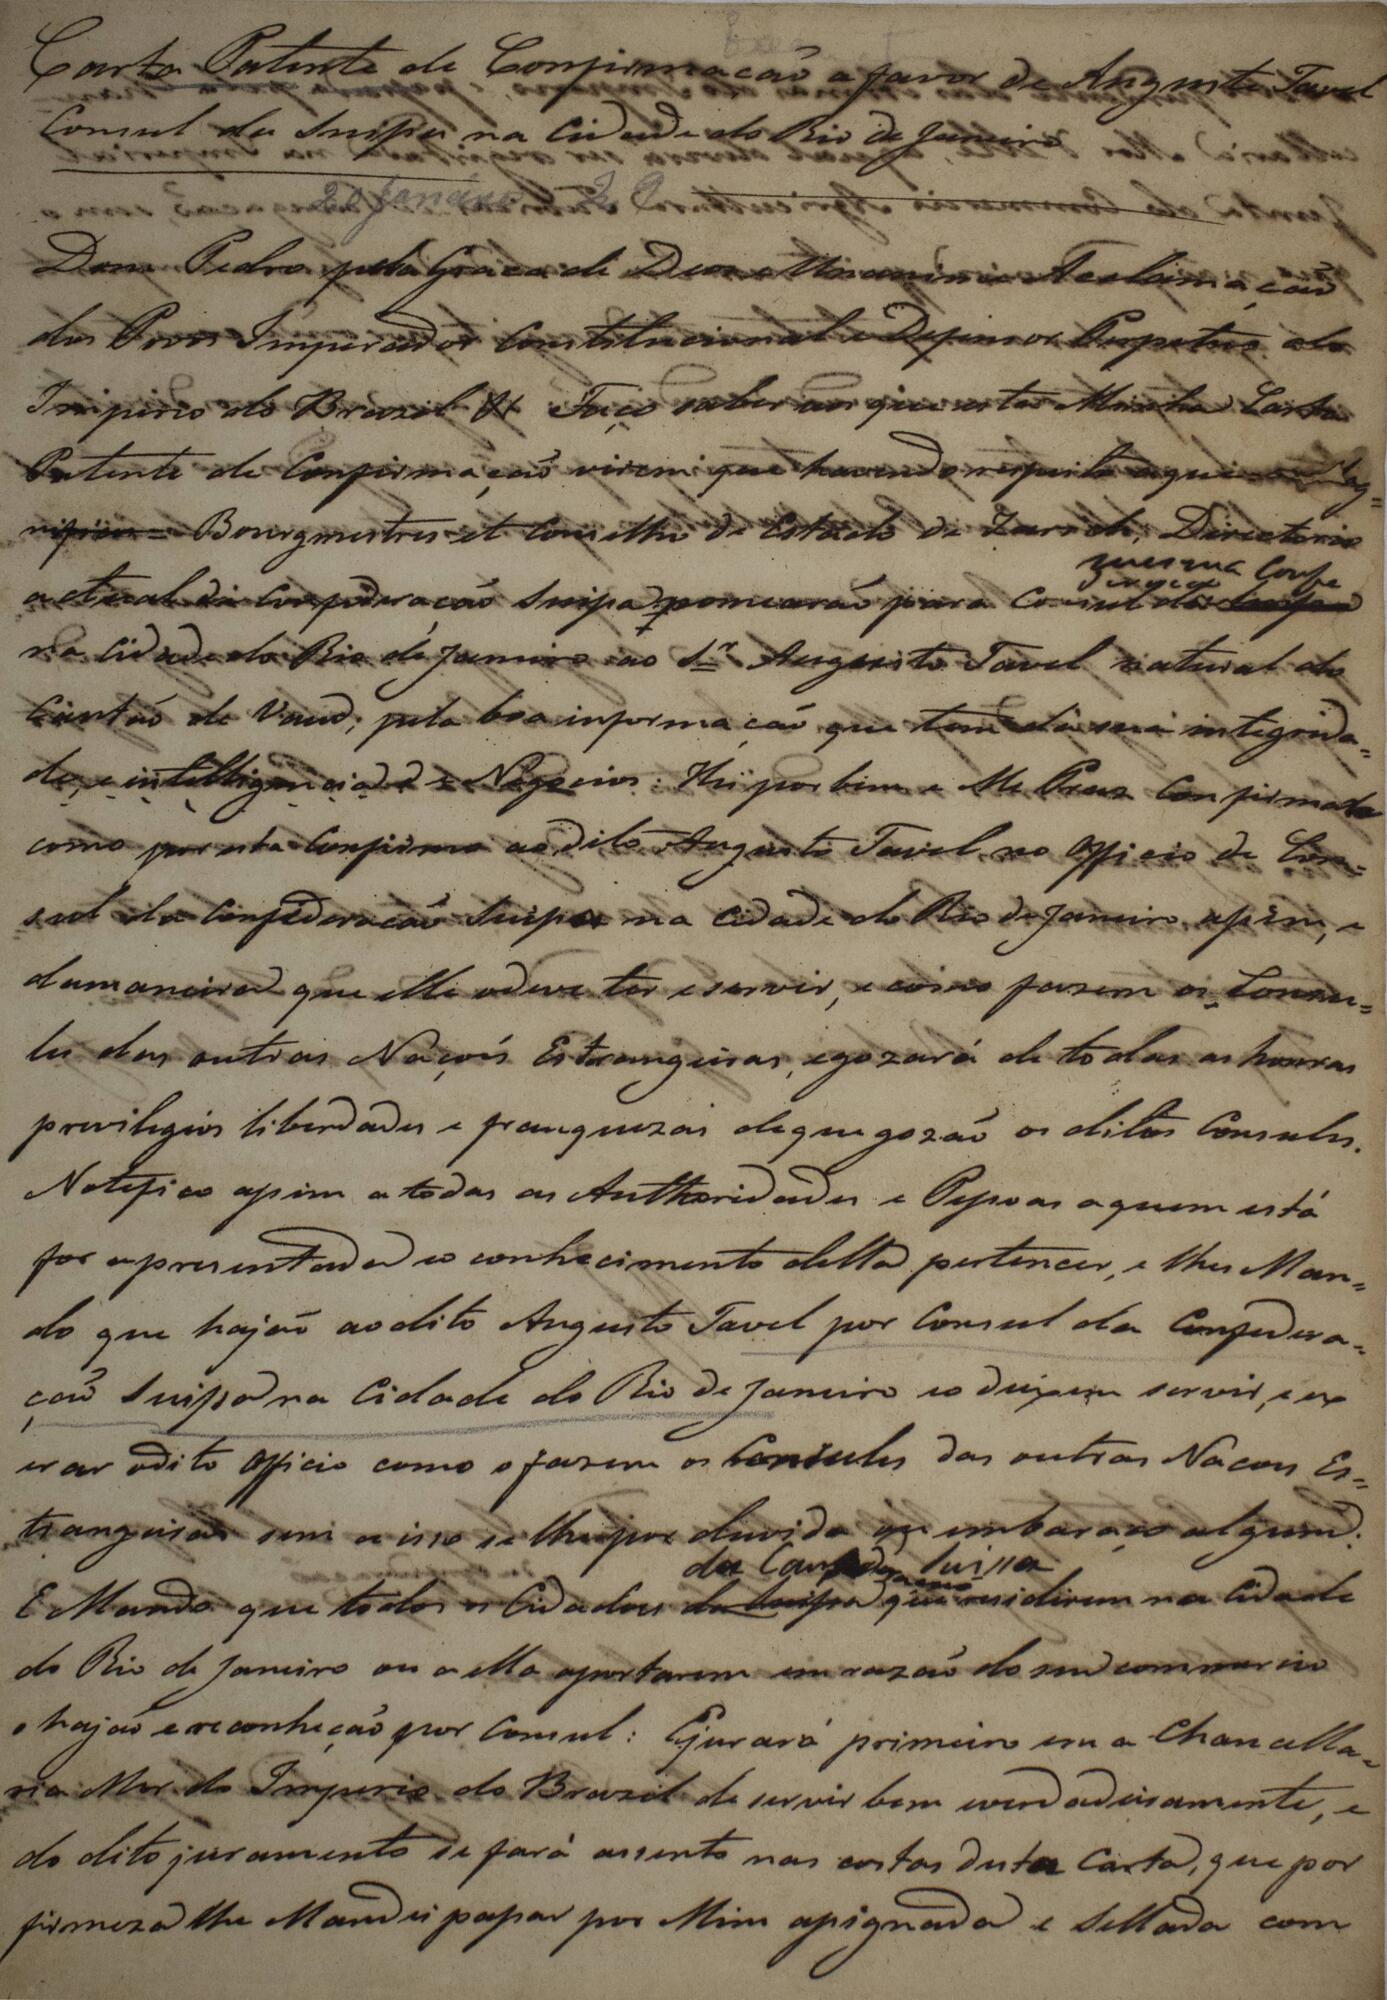 Carta Patente de Confirmação a favor de Auguste Tavel
Consul da Suissa na Cidade do Rio de Janeiro
20 Janeiro
Dom Pedro pela Graça de Deos e Unanime Acclamação
dos Povos Imperador Constitucional e Defensor Perpetuo do
Imperio do Brazil &ª Faço saber aos que esta Minha Carta
Patente de Confirmação virem que havendo respeito a que os Mag=
nificos= Bourgmestres et Conselho de Estado de Zurich, Directorio
mesma Confe
deração
actual da Confederação Suissa nomearão para Consul da
na Cidade do Rio de Janeiro ao Sr. Augusto Tavel natural do
Cantão de Vaud; pela boa informação que tem da sua integrida=
de, e intelligencia de Negocios: Hei por bem e Me Praz Confirmalo
como por esta Confirmo ao dito Augusto Tavel no Officio de Con=
sul da Confederação Suissa na Cidade do Rio de Janeiro, assim, e
da maneira que elle o deve ter e servir, e como fazem os Consu=
les das outras Naçoẽs Estrangeiras, e gozará de todas as honras
previlegios liberdades e franquezas de que gozão os ditos Consules.
Notefico assim a todas as Authoridades e Pessoas a quem esta
for apresentada e o conhecimento della pertencer, e lhes Man=
do que hajão ao dito Augusto Tavel por Consul da Confedera=
ção Suissa na Cidade do Rio de Janeiro e o deixem servir, e ex
ercer o dito Officio como o fazem os Consules das outras Nacoes Es=
trangeiras sem a isso se lhe por duvida ou embaraço algum.
da Confederação Suissa
E Mando que todos os Cidadoes da Suissa que residirem na Cidade
do Rio de Janeiro ou a ella aportarem em razão do seu commercio
o hajão e reconheção por Consul: E jurará primeiro em a Chancella=
ria Mor do Imperio do Brazil de servir bem e verdadeiramente, e
do dito juramento se fará assento nas costas desta Carta, que por
firmeza lhe Mandei passar por Mim assignada e Sellada com